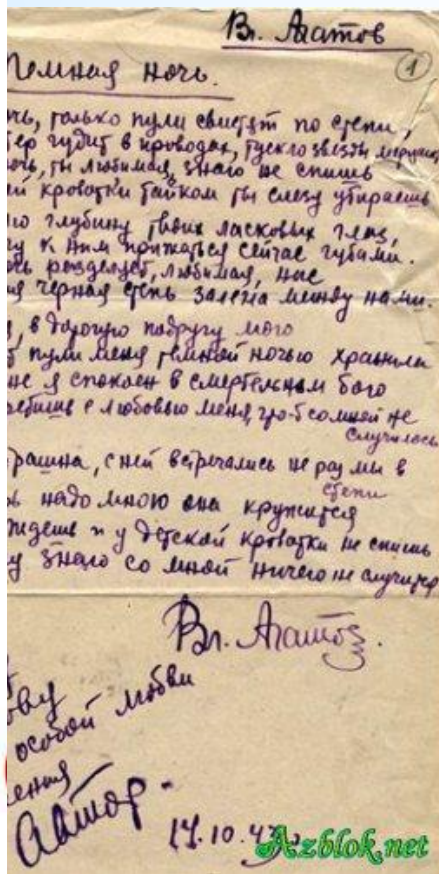 Вл. Агатов
1
Темная ночь.
чь, только пули свистят по степи,
тер гудит в проводах, тускло звезды мерцают
ночь, ты любимая, знаю не спишь
ой кроватки тайком ты слезу утираешь
лю глубину твоих ласковых глаз,
чу к ним прижаться сейчас губами.
ночь разделяет, любимая, нас
ая черная степь залегла между нами.
я, в дорогую подругу мою
пули меня темной ночью хранила
мне я спокоен в смертельном бою
с любовью меня, что-б со мной не
случилось
рашна, с ней встречались не раз мы в
степи
надо мною она кружится
ждешь и у детской кроватки не спишь
у знаю со мной ничего не случится
Вл. Агатов.
ову
особой любви
ения
Автор.
14.10.43
Azblok.net